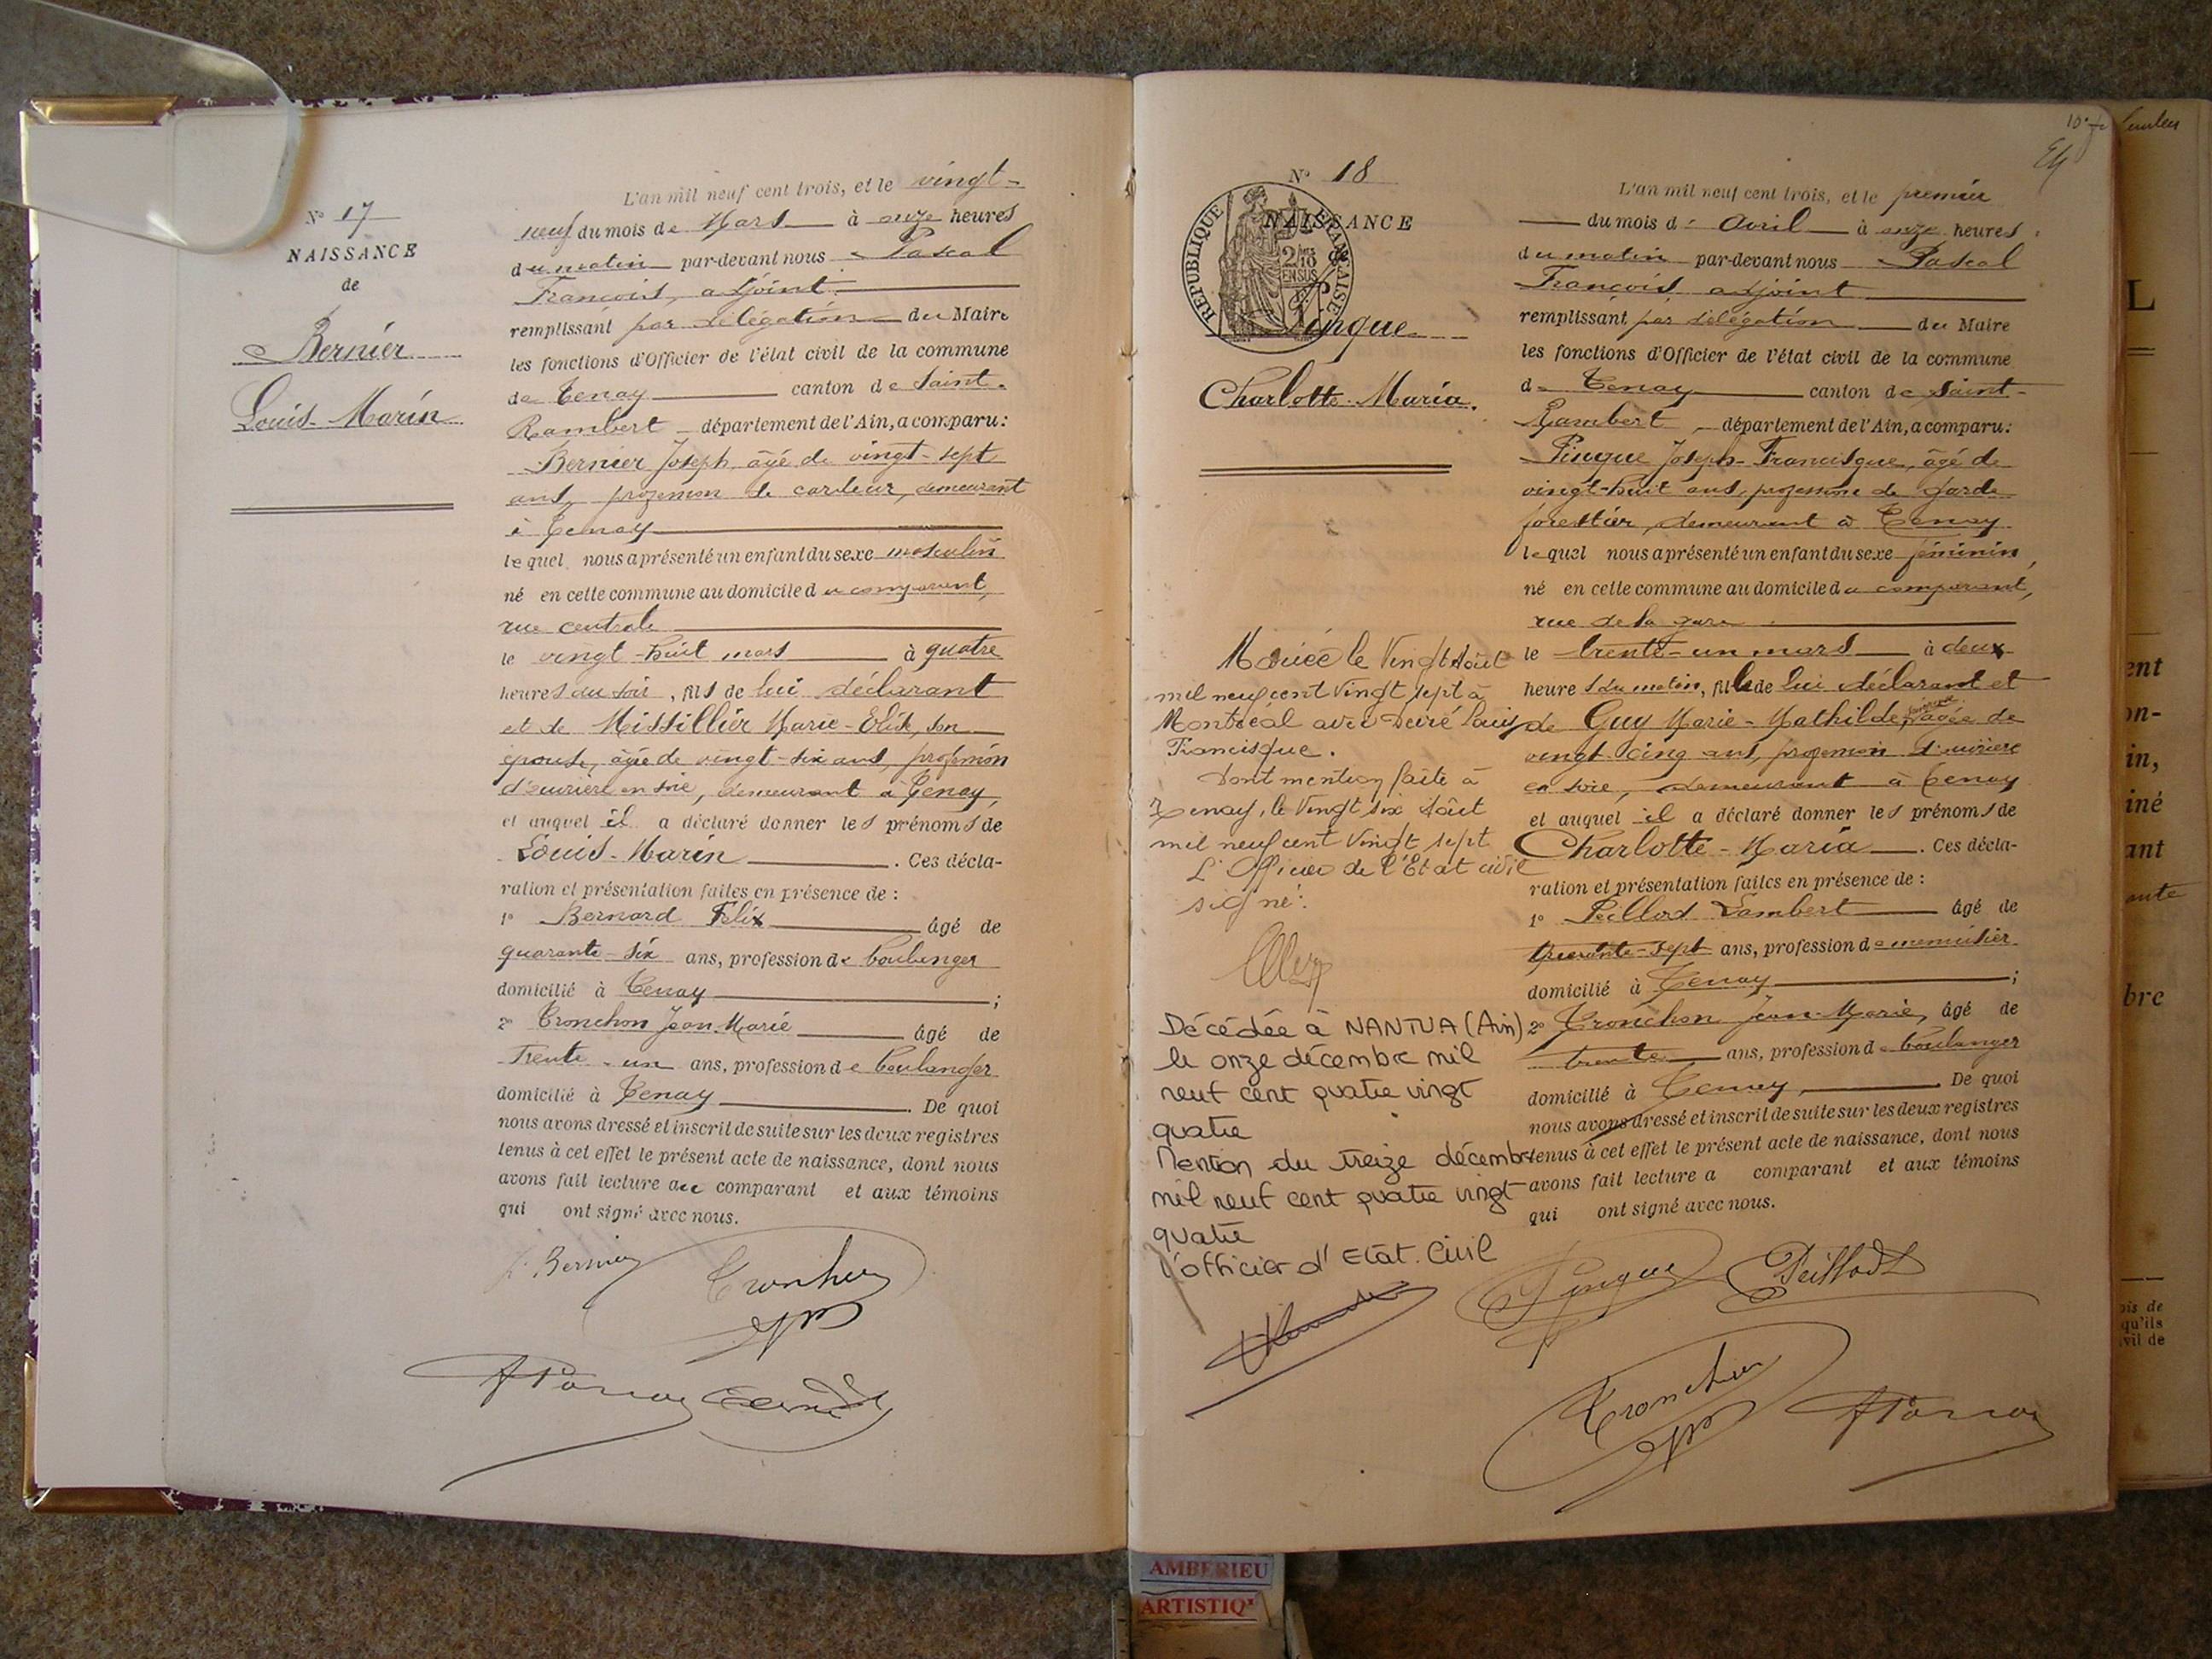 N° 17
NAISSANCE
de
Bernier
Louis-Marin
L'an mil neuf cent trois, et le vingt-
neuf du mois de Mars à onze heures
du matin par-devant nous Pascal
François, adjoint
remplissant par délégation du Maire
les fonctions d'Officier de l'état civil de la commune
de Tenay canton de Saint-
Rambert département de l'Ain, a comparu:
Bernier Joseph, âgé de vingt-sept
ans, profession de cardeur, demeurant
à Tenay
lequel nous a présenté un enfant du sexe masculin
né en cette commune au domicile du comparant,
rue centrale
le vingt-huit mars à quatre
heures du soir, fils de lui déclarant
et de Missillier Marie- son
épouse, âgée de vingt-six ans, profession
d'ouvrière en soie, demeurant à Tenay,
et auquel il a déclaré donner les prénoms de
Louis-Marin. Ces décla-
ration et présentation faites en présence de :
1° Bernard Félix âgé de
quarante-six ans, profession de boulanger
domicilié à Tenay ;
2° Tronchon Jean-Marie âgé de
Trente-un ans, profession de boulanger
domicilié à Tenay. De quoi
nous avons dressé et inscrit de suite sur les deux registres
tenus à cet effet le présent acte de naissance, dont nous
avons fait lecture au comparant et aux témoins
qui ont signé avec nous.
Bernier
Tronchon
N° 18
NAISSANCE
de
Pinque
Charlotte-Maria.
RÉPUBLIQUE FRANÇAISE
Mariée le Vingt Août
mil neuf cent vingt sept à
Montréal avec Louis
Francisque.
Dont mention faite à
Tenay, le Vingt six Août
mil neuf cent vingt sept
L'Officier de l'État civil
signé:
Décédée à NANTUA (Ain)
le onze décembre mil
neuf cent quatre vingt
quatre
Mention du treize décembre
mil neuf cent quatre vingt
quatre
l'officier d'Etat.Civil
L'an mil neuf cent trois, et le premier
du mois d' Avril à onze heures
du matin par-devant nous Pascal
François adjoint
remplissant par délégation du Maire
les fonctions d'Officier de l'état civil de la commune
de Tenay canton de Saint-
Rambert, département de l'Ain, a comparu:
Pinque Joseph-Francisque, âgé de
vingt-huit ans, profession de garde
forestier, demeurant à Tenay
lequel nous a présenté un enfant du sexe féminin,
né en cette commune au domicile du comparant,
rue de la gare
le trente-un mars à deux
heures du matin, fille de lui déclarant et
de Guy Marie-Mathilde, âgée de
vingt-cinq ans, profession d'ouvrière
en soie, demeurant à Tenay
et auquel il a déclaré donner les prénoms de
Charlotte-Maria. Ces décla-
ration et présentation faites en présence de :
1° Peillod Lambert âgé de
Quarante-sept ans, profession de menuisier
domicilié à Tenay ;
2° Tronchon Jean-Marie, âgé de
trente ans, profession de boulanger
domicilié à Tenay, De quoi
nous avons dressé et inscrit de suite sur les deux registres
tenus à cet effet le présent acte de naissance, dont nous
avons fait lecture a comparant et aux témoins
qui ont signé avec nous.
Pinque
Peillod
Tronchon
AMBERIEU
ARTISTIQ